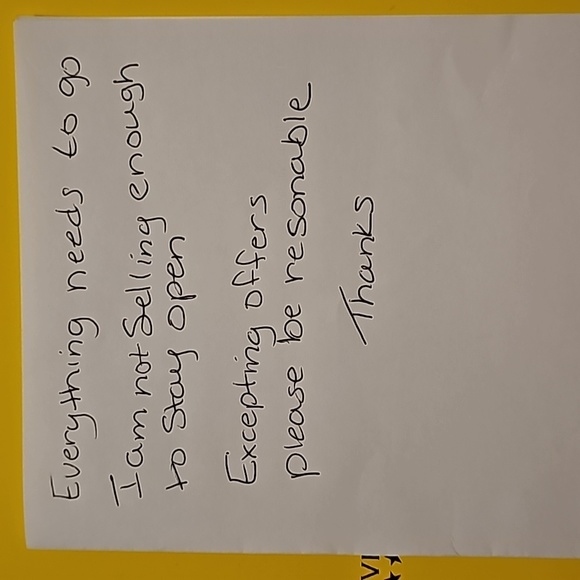 Everything needs to go
I am not Selling enough
to Stay open
Excepting offers
please be resonable
Thanks
VI